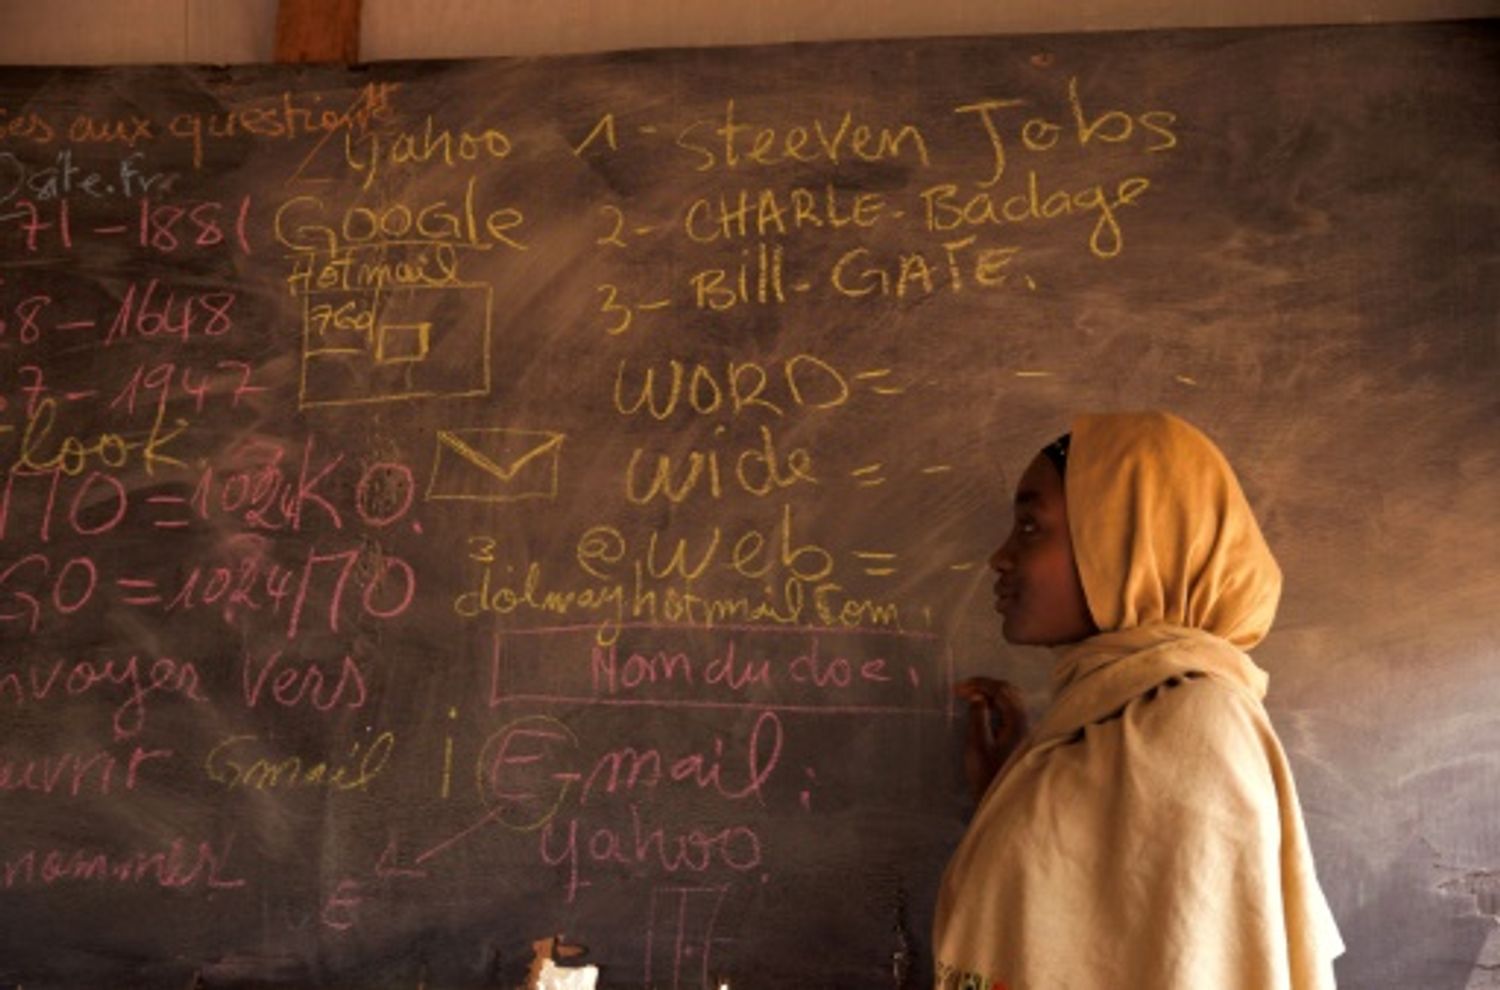 es aux questions
Yahoo
1- Steeven Jobs
site.fr
Google
2- CHARLE- Badage
71-1881
Hotmail
3- Bill- GATE.
8-1648
760
7-1947
WORD=- - -
look
wide = -
MO = 1024KO.
3
@web = -
GO = 1024MO
dolmayhotmail.com.
nvoyer vers
Nom du doc.
uvrir Gmail i E-mail:
nommer
Yahoo.
E